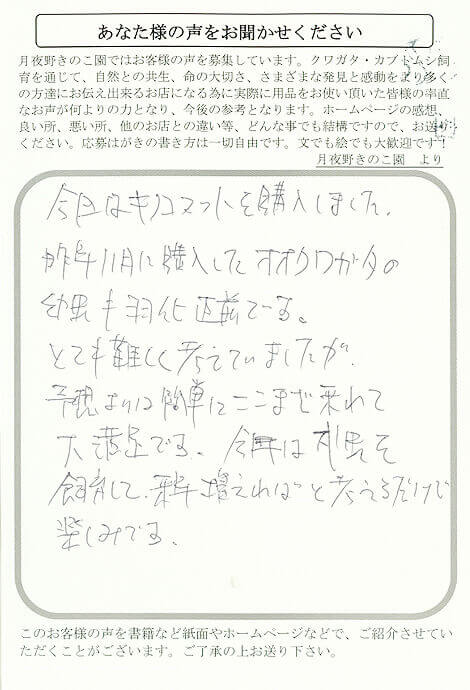 あなた様の声をお聞かせください
月夜野きのこ園ではお客様の声を募集しています。クワガタ・カブトムシ飼
育を通じて、自然との共生、命の大切さ、さまざまな発見と感動をより多く
の方達にお伝え出来るお店になる為に実際に用品をお使い頂いた皆様の率直
なお声が何よりの力となり、今後の参考となります。ホームページの感想、
良い所、悪い所、他のお店との違い等、どんな事でも結構ですので、お送り
ください。応募はがきの書き方は一切自由です。文でも絵でも大歓迎です!
月夜野きのこ園 より
今回はキノコマットを購入しました。
昨年11月に購入したオオクワガタの
幼虫も羽化直前で
とても難しく考えていましたが、
予想よりは簡単にここまで来れて
大満足です。今年は 虫を
飼育して、来年増えればと考えるだけで
楽しみです。
このお客様の声を書籍など紙面やホームページなどで、ご紹介させてい
ただくことがございます。ご了承の上お送り下さい。